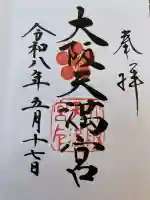 奉拝
大阪天満宮
令和八年五月十七日